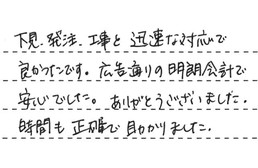 下見、発注、工事と迅速な対応で
良かったです。広告通りの明朗会計で
安心でした。ありがとうございました。
時間も正確で助かりました。